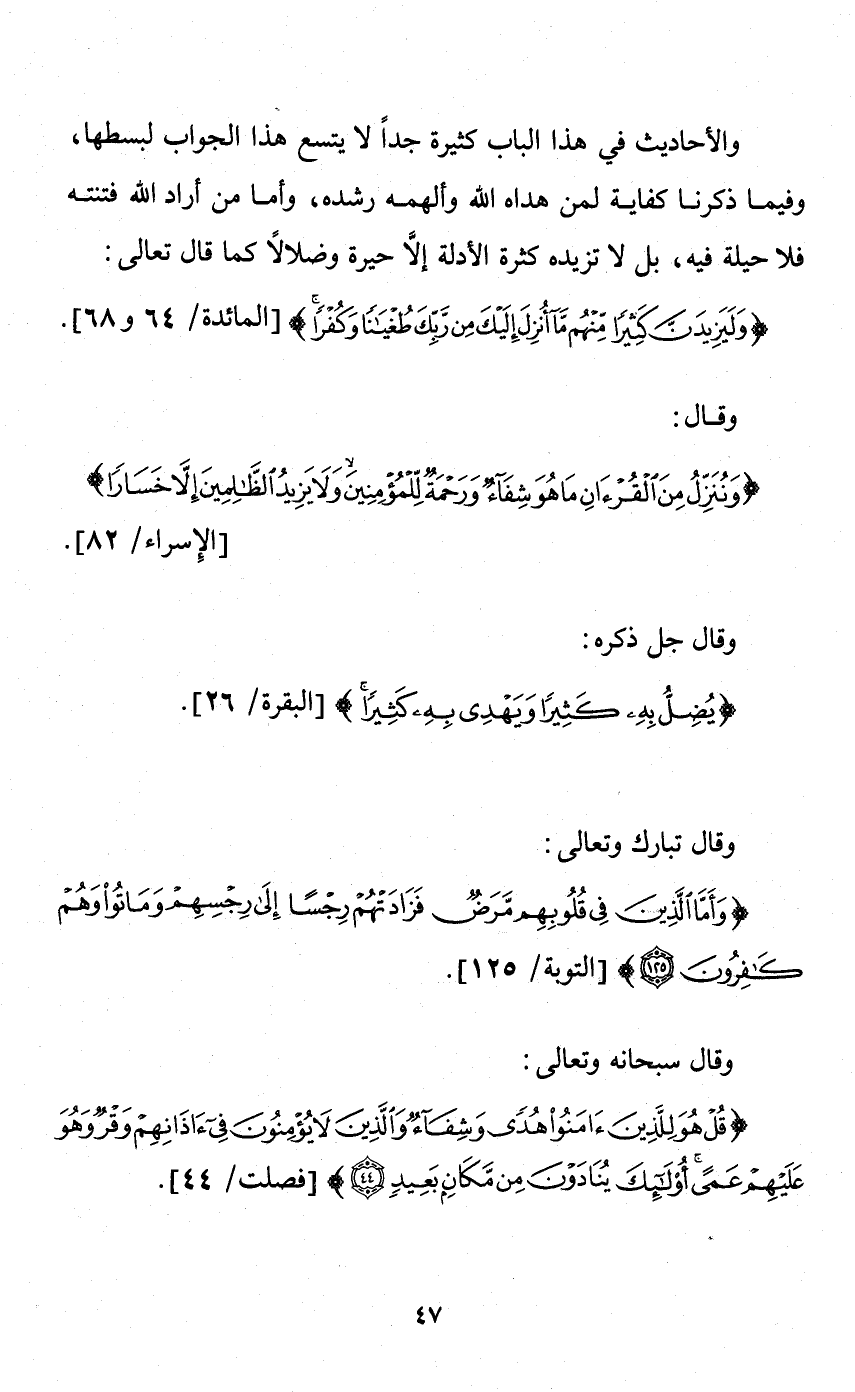 والأحاديث في هذا الباب كثيرة جداً لا يتسع هذا الجواب لبسطها،
وفيما ذكرنا كفاية لمن هداه الله وألهمه رشده، وأما من أراد الله فتنته
فلا حيلة فيه، بل لا تزيده كثرة الأدلة إلَّا حيرة وضلالًا كما قال تعالى:
﴿وَلَيَزِيدَنَّ كَثِيرًا مِّنْهُم مَّآ أُنزِلَ إِلَيْكَ مِن رَّبِّكَ طُغْيَٰنًا وَكُفْرًاۚ﴾ [المائدة/ ٦٤ و ٦٨].
وقال:
﴿وَنُنَزِّلُ مِنَ ٱلْقُرْءَانِ مَا هُوَ شِفَآءٌ وَرَحْمَةٌ لِّلْمُؤْمِنِينَۙ وَلَا يَزِيدُ ٱلظَّٰلِمِينَ إِلَّا خَسَارًا﴾
[الإسراء/ ٨٢].
وقال جل ذكره:
﴿يُضِلُّ بِهِۦ كَثِيرًا وَيَهْدِى بِهِۦ كَثِيرًاۚ﴾ [البقرة/ ٢٦].
وقال تبارك وتعالى:
﴿وَأَمَّا ٱلَّذِينَ فِى قُلُوبِهِم مَّرَضٌ فَزَادَتْهُمْ رِجْسًا إِلَىٰ رِجْسِهِمْ وَمَاتُوا۟ وَهُمْ
كَٰفِرُونَ ١٢٥﴾ [التوبة/ ١٢٥].
وقال سبحانه وتعالى:
﴿قُلْ هُوَ لِلَّذِينَ ءَامَنُوا۟ هُدًى وَشِفَآءٌ وَٱلَّذِينَ لَا يُؤْمِنُونَ فِىٓ ءَاذَانِهِمْ وَقْرٌ وَهُوَ
عَلَيْهِمْ عَمًىۚ أُو۟لَٰٓئِكَ يُنَادَوْنَ مِن مَّكَانٍ بَعِيدٍ ٤٤﴾ [فصلت/ ٤٤].
٤٧